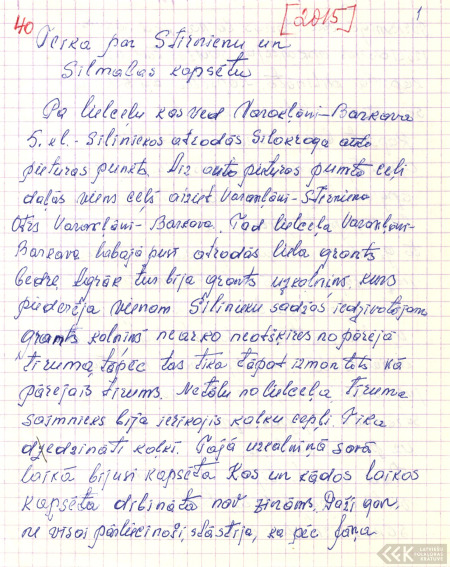 40
[2015]
1
Teika par Stirnienu un
Silmalas kapsētu
Pa lielceļu kas ved Varakļāni-Barkava
5. kl. - Siliniekos atrodās Silakroga auto
pieturas punkts. Aiz auto pieturas punkta ceļi
dalās viens ceļš aiziet Varakļāni-Stirniene
Otrs Varakļāni-Barkava. Tad lielceļa Varakļāni-
Barkava labajā pusē atrodās liela grants
bedre. Agrāk tur bija grants uzkalniņš, kurš
piederēja vienam Silinieku sādžas iedzīvotājam
grants kalniņš ne ar ko neatšķīrās no pārējā
tīruma, tāpēc tas tika tāpat izmantots kā
pārējais tīrums. Netālu no lielceļa tīruma
saimnieks bija ierīkojis kaļķu cepli. Tika
dzedzināti kaļķi. Tajā uzkalniņā savā
laikā bijusi kapsēta. Kas un kādos laikos
kapsēta dibināta nav zināms. Daži gan,
ne visai pārliecinoši, stāstīja, ka pēc
LATVIEŠU
FOLKLORAS
KRĀTUVE